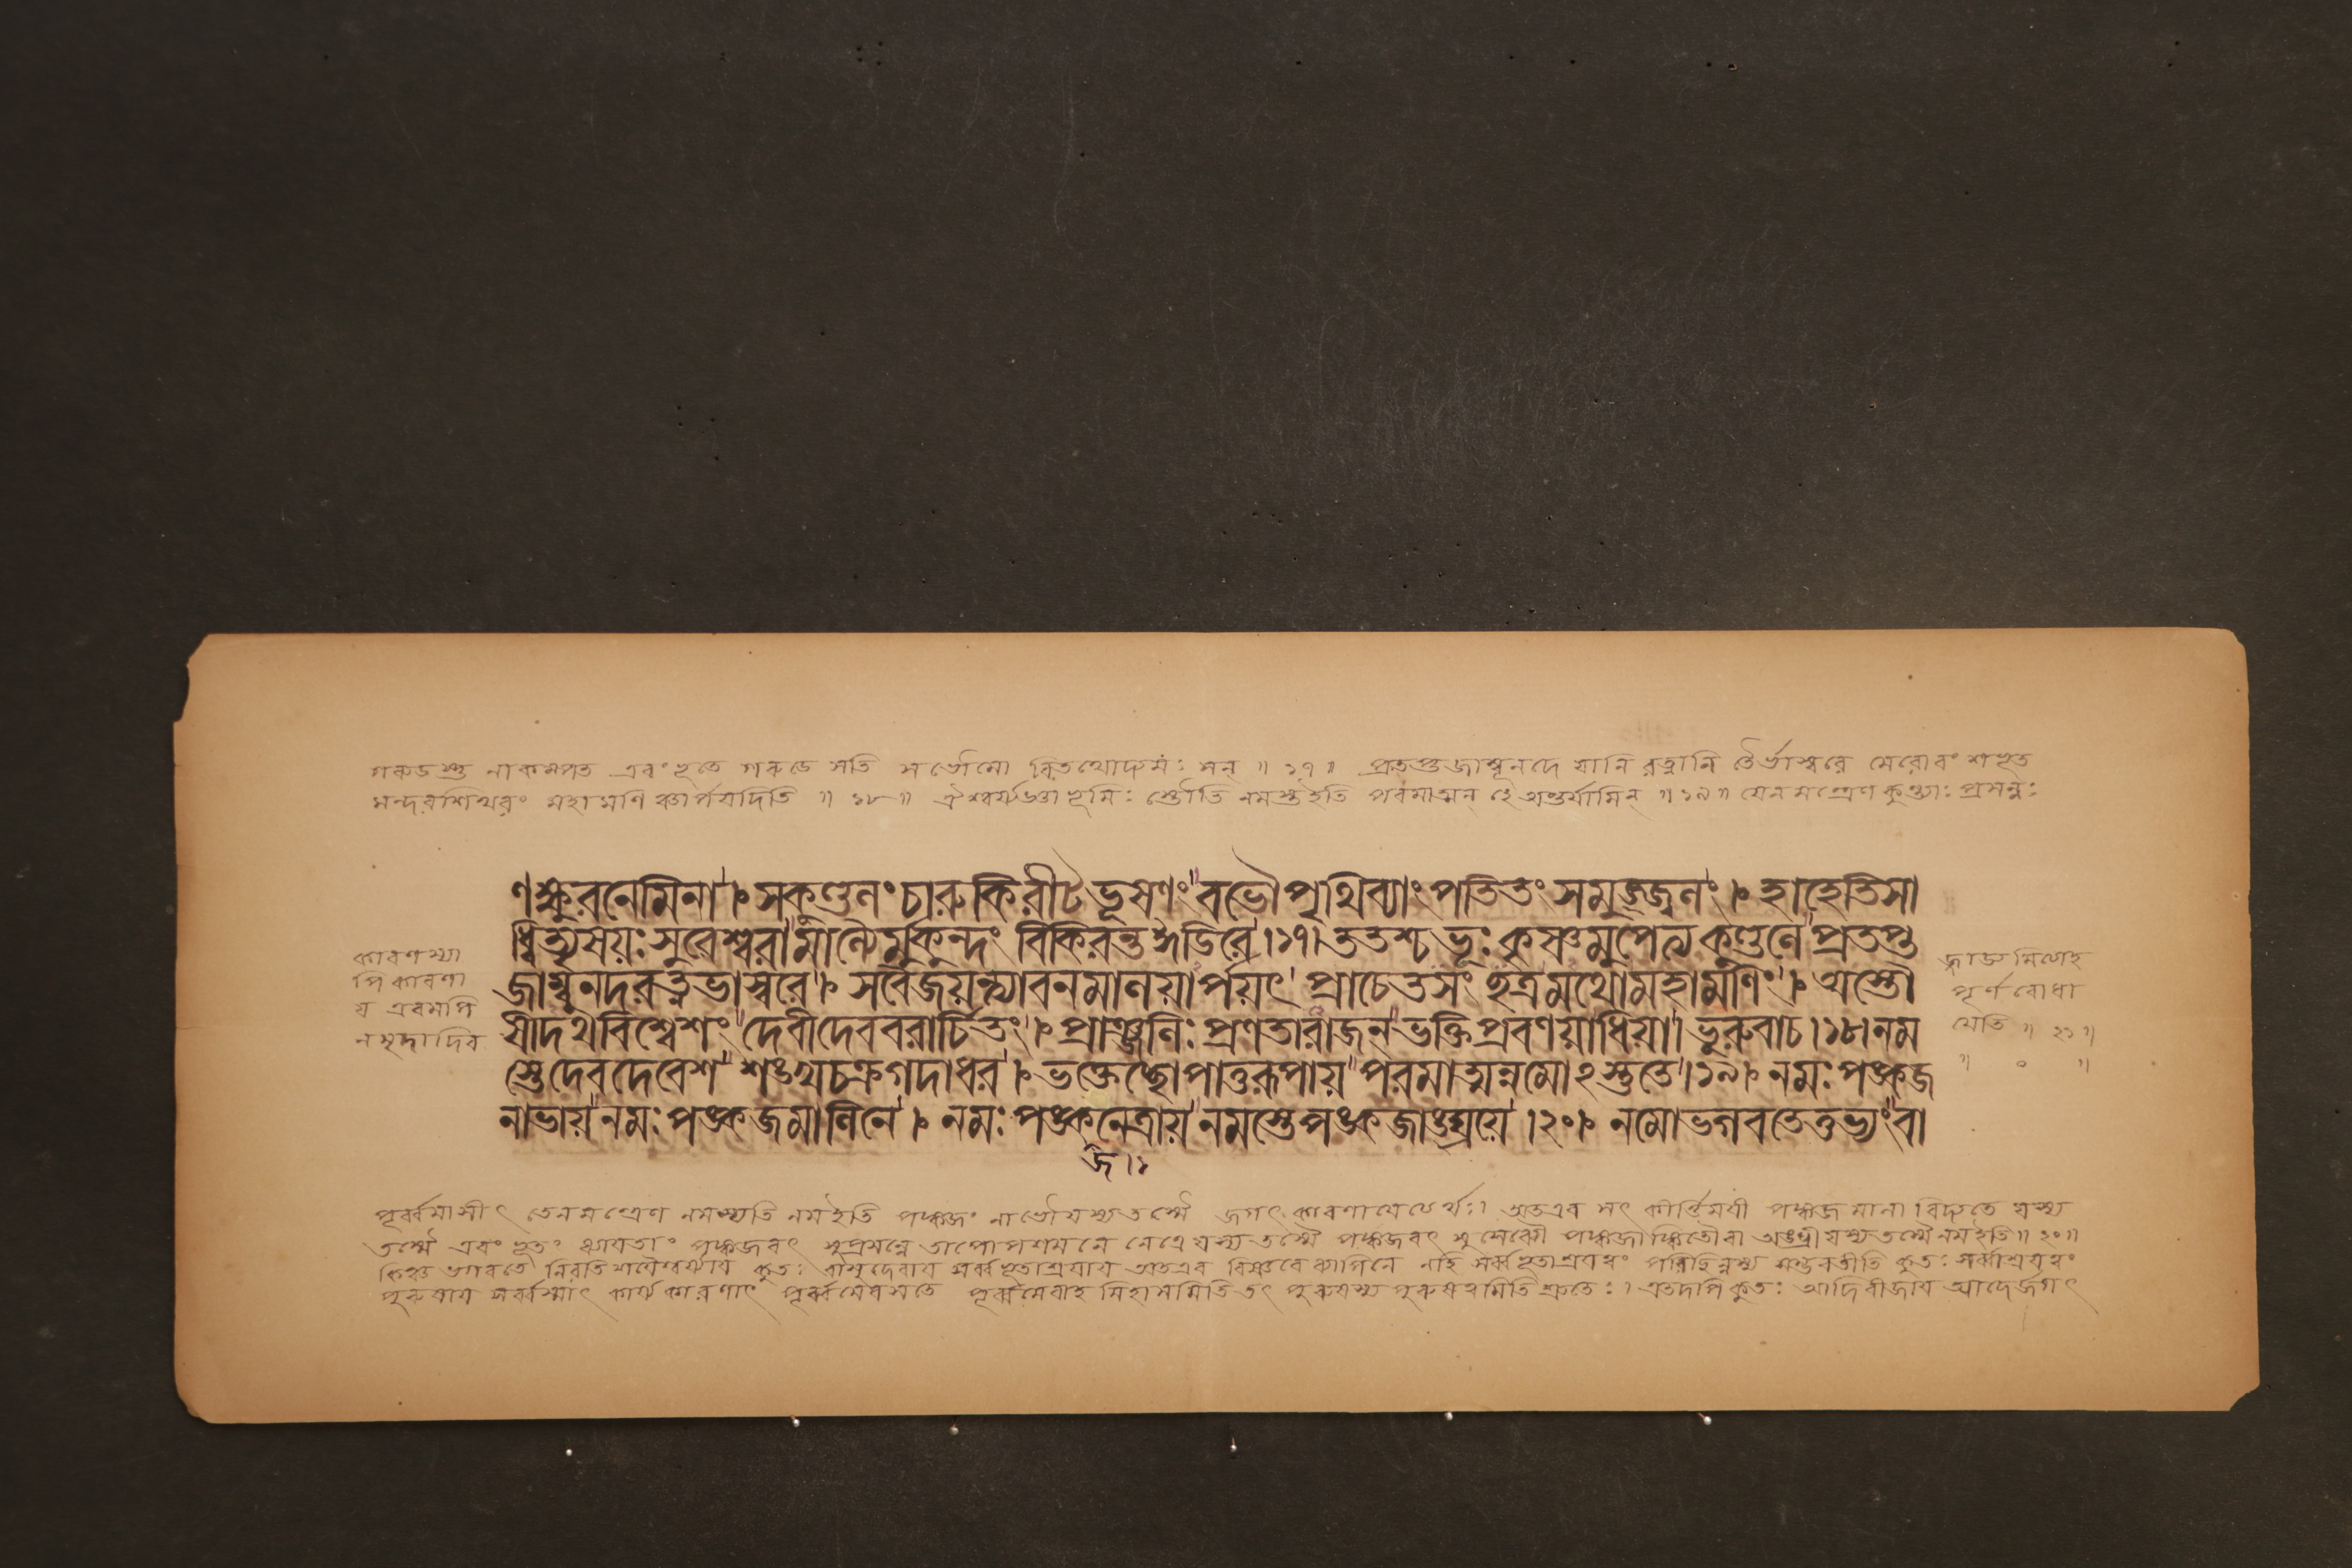 গরুডস্তু নাকম্পত এবংভূতে গরুডে সতি স ভৌমো বিতথোদ্যমঃ সন্ ॥ ১৭ ॥ প্রতপ্তজাম্বূনদে যানি রত্নানি তৈর্ভাস্বরে মেরোরংশভূত
মন্দরশিখরং মহামণি ঞ্চার্পযদিতি ॥ ১৮ ॥ ঐশ্বর্য্য ভূমিঃ স্তৌতি নমস্ত ইতি পরমাত্মন্ হে অন্তর্যামিন্ ॥ ১৯ ॥ যেন মন্ত্রেণ কুন্ত্যাঃ প্রসন্নঃ
ণ ক্ষুরনেমিনা । সকুণ্ডলং চারুকিরীটভূষণং বভৌ পৃথিব্যাং পতিতং সমুজ্জ্বলং । হাহেতি সা
ধ্বিত্যৃষয়ঃ সুরেশ্বরা মাল্যৈর্মুকুন্দং বিকিরন্ত ঈডিরে । ১৭ । ততশ্চ ভূঃ কৃষ্ণমুপেত্য কুণ্ডলে প্রতপ্ত
জাম্বুনদরত্নভাস্বরে । সবৈজয়ন্ত্যা বনমালয়ার্পয়ৎ প্রাচেতসং ছত্রমথো মহামণিং । অস্তৌ
ষীদথ বিশ্বেশং দেবী দেববরার্চিতং । প্রাঞ্জলিঃ প্রণতা রাজন্ ভক্তিপ্রবণয়া ধিয়া । ভূরুবাচ । ১৮ । নম
স্তে দেবদেবেশ শঙ্খচক্রগদাধর । ভক্তেচ্ছোপাত্তরূপায় পরমাত্মন্নমোঽস্তুতে । ১৯ । নমঃ পঙ্কজ
নাভায় নমঃ পঙ্কজমালিনে । নমঃ পঙ্কনেত্রায় নমস্তে পঙ্কজাঙ্ঘ্রয়ে । ২০ । নমো ভগবতে তুভ্যং বা
জ । ১
কারণস্যা
পি কারণা
য এবমপি
ন মৃদাদিব
জ্জাড্যমিত্যাহ
পূর্ণবোধা
যেতি ॥ ২১ ॥
॥ ০ ॥
পূর্ব্বমাসীৎ তেন মন্ত্রেণ নমস্যতি নম ইতি পঙ্কজং নাভৌ যস্য তস্মৈ জগৎকারণাযেত্যর্থঃ । অতএব সৎ কীর্ত্তিমযী পঙ্কজমালা বিদ্যতে যস্য
তস্মৈ এবং ভূতং ধ্যাযতাং পঙ্কজবৎ সুপ্রসন্নে তাপোপশমনে নেত্রে যস্য তস্মৈ পঙ্কজবৎ সুসেব্যৌ পঙ্কজাঙ্কিতৌ বা অঙ্ঘ্রী যস্য তস্মৈ নম ইতি ॥ ২০ ॥
কিঞ্চ ভগবতে নিরতিশযৈশ্বর্য্যায কুতঃ বাসুদেবায সর্ব্বভূতাশ্রযায অতএব বিষ্ণবে ব্যাপিনে নহি সর্ব্বভূতাশ্রযত্বং পরিচ্ছিন্নস্য সম্ভবতীতি কুতঃ সর্ব্বাশ্রযত্বং
পুরুষায সর্ব্বস্মাৎ কার্য্যকারণাৎ পূর্ব্বমেব সতে পূর্ব্বমেবাহমিহাসমিতি তৎ পুরুষস্য পুরুষত্বমিতি শ্রুতেঃ । এতদপি কুতঃ আদিবীজায আদের্জগৎ